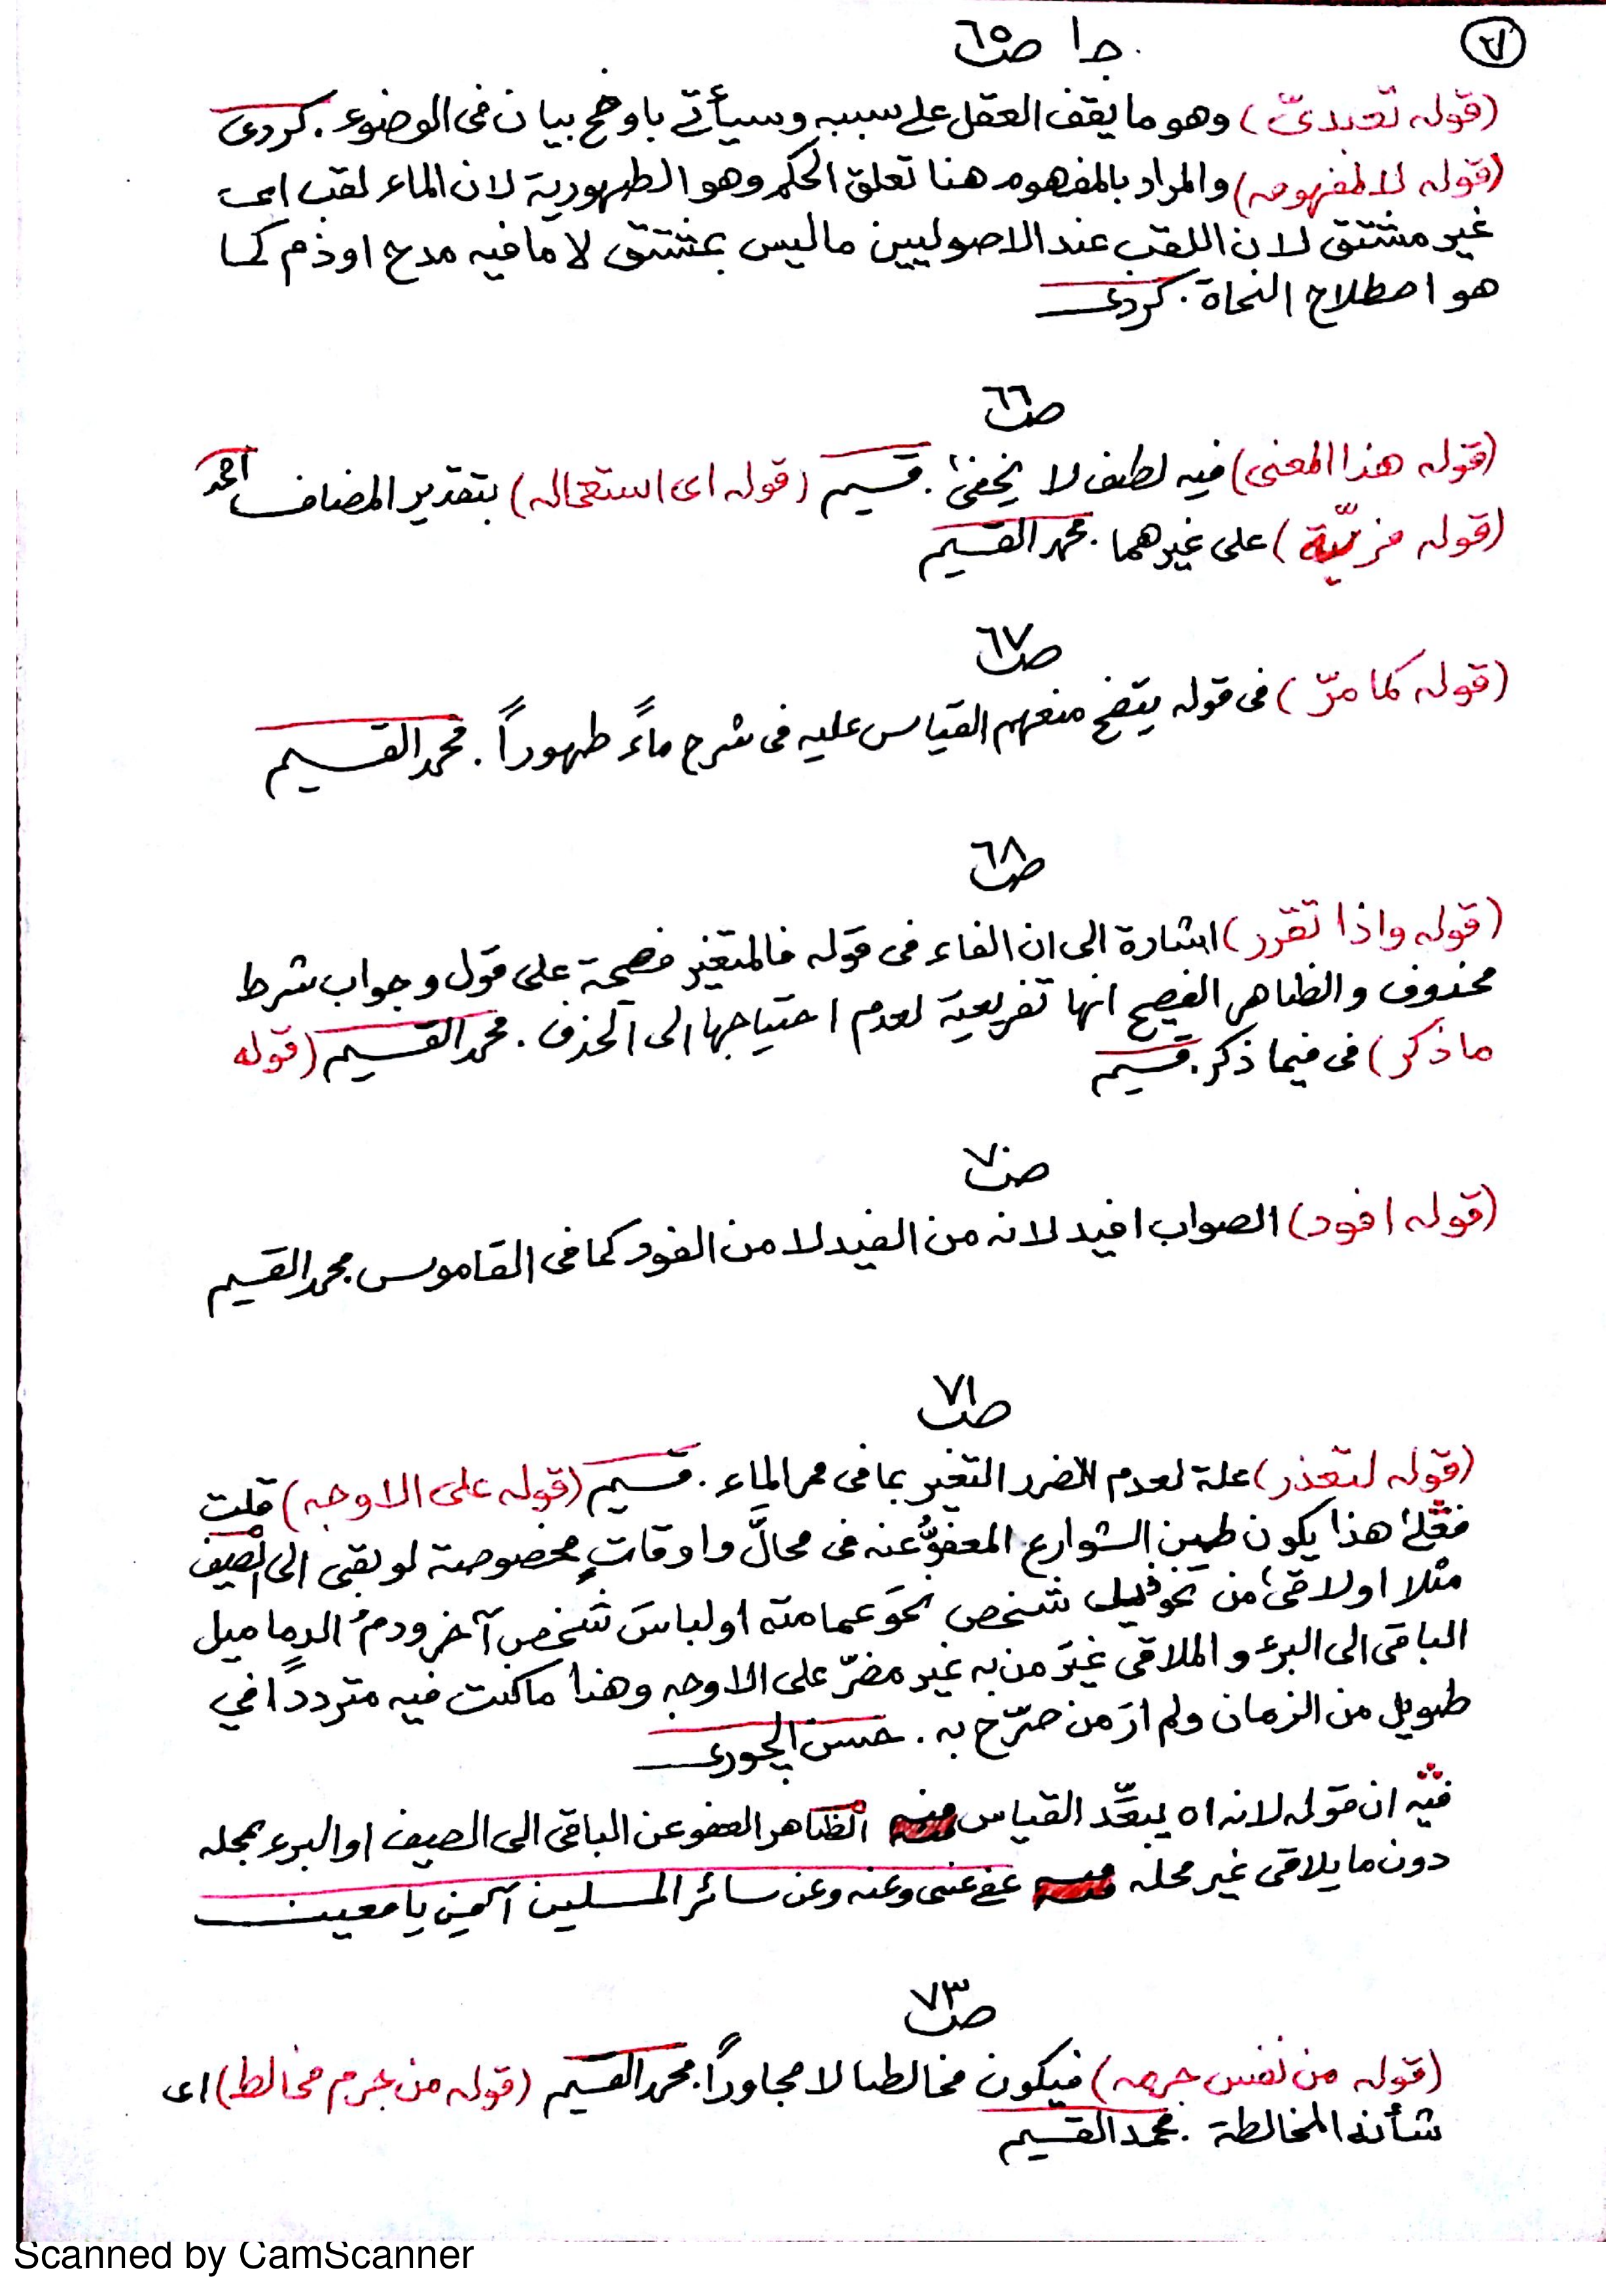 ٧
ج١ ص٦٥
(قوله تعبدىّ) وهو ما يقف العقل على سببه وسيأتى باوضح بيان فى الوضوء. كردى
(قوله لا لمفهومه) والمراد بالمفهوم هنا تعلق الحكم وهو الطهورية لان الماء لقب اى
غير مشتق لان اللقب عند الاصوليين ما ليس بمشتق لا ما فيه مدح او ذم كما
هو اصطلاح النحاة. كردى
ص٦٦
(قوله هذا المعنى) فيه لطف لا يخفىٰ. قسيم (قوله اى استعماله) بتقدير المضاف احمد
(قوله مزيّة) على غيرهما. محمد القسيم
ص٦٧
(قوله كما مرّ) فى قوله يتضح منعهم القياس عليه فى شرح ماءً طهوراً. محمد القسيم
ص٦٨
(قوله واذا تقرر) اشارة الى ان الفاء فى قوله فالمتغير فصيحة على قول وجواب شرط
محذوف والظاهر الفصيح انها تفريعية لعدم احتياجها الى الحذف. محمد القسيم (قوله
ما ذكر) فى فيما ذكر. قسيم
ص٧٠
(قوله افود) الصواب افيد لانه من الفيد لا من الفود كما فى القاموس محمد القسيم
ص٧١
(قوله لتعذر) علة لعدم الضرر التغير بما فى ممر الماء. قسيم (قوله على الاوجه) قلت
فعلىٰ هذا يكون طين الشوارع المعفوُّ عنه فى محالَّ واوقاتٍ مخصوصة لو بقى الى الصيف
مثلا او لاقىٰ من نحو ذيل شخص نحوَ عمامته او لباسَ شخص آخر ودمُ الدماميل
الباقى الى البرء والملاقى غيرَ من به غير مضرّ على الاوجه وهذا ما كنت فيه مترددا في
طويل من الزمان ولم ارَ من صرّح به. حسن الچورى
فيه ان قوله لانه اه يبعِّد القياس الظاهر العفو عن الباقى الى الصيف او البرء بمحله
دون ما يلاقى غير محله عفى عنى وعنه وعن سائر المسلمين آمين يا معين
ص٧٣
(قوله من نفس جرمه) فيكون مخالطا لا مجاوراً. محمد القسيم (قوله من جرم مخالط) اى
شأنه المخالطة. محمد القسيم
Scanned by CamScanner